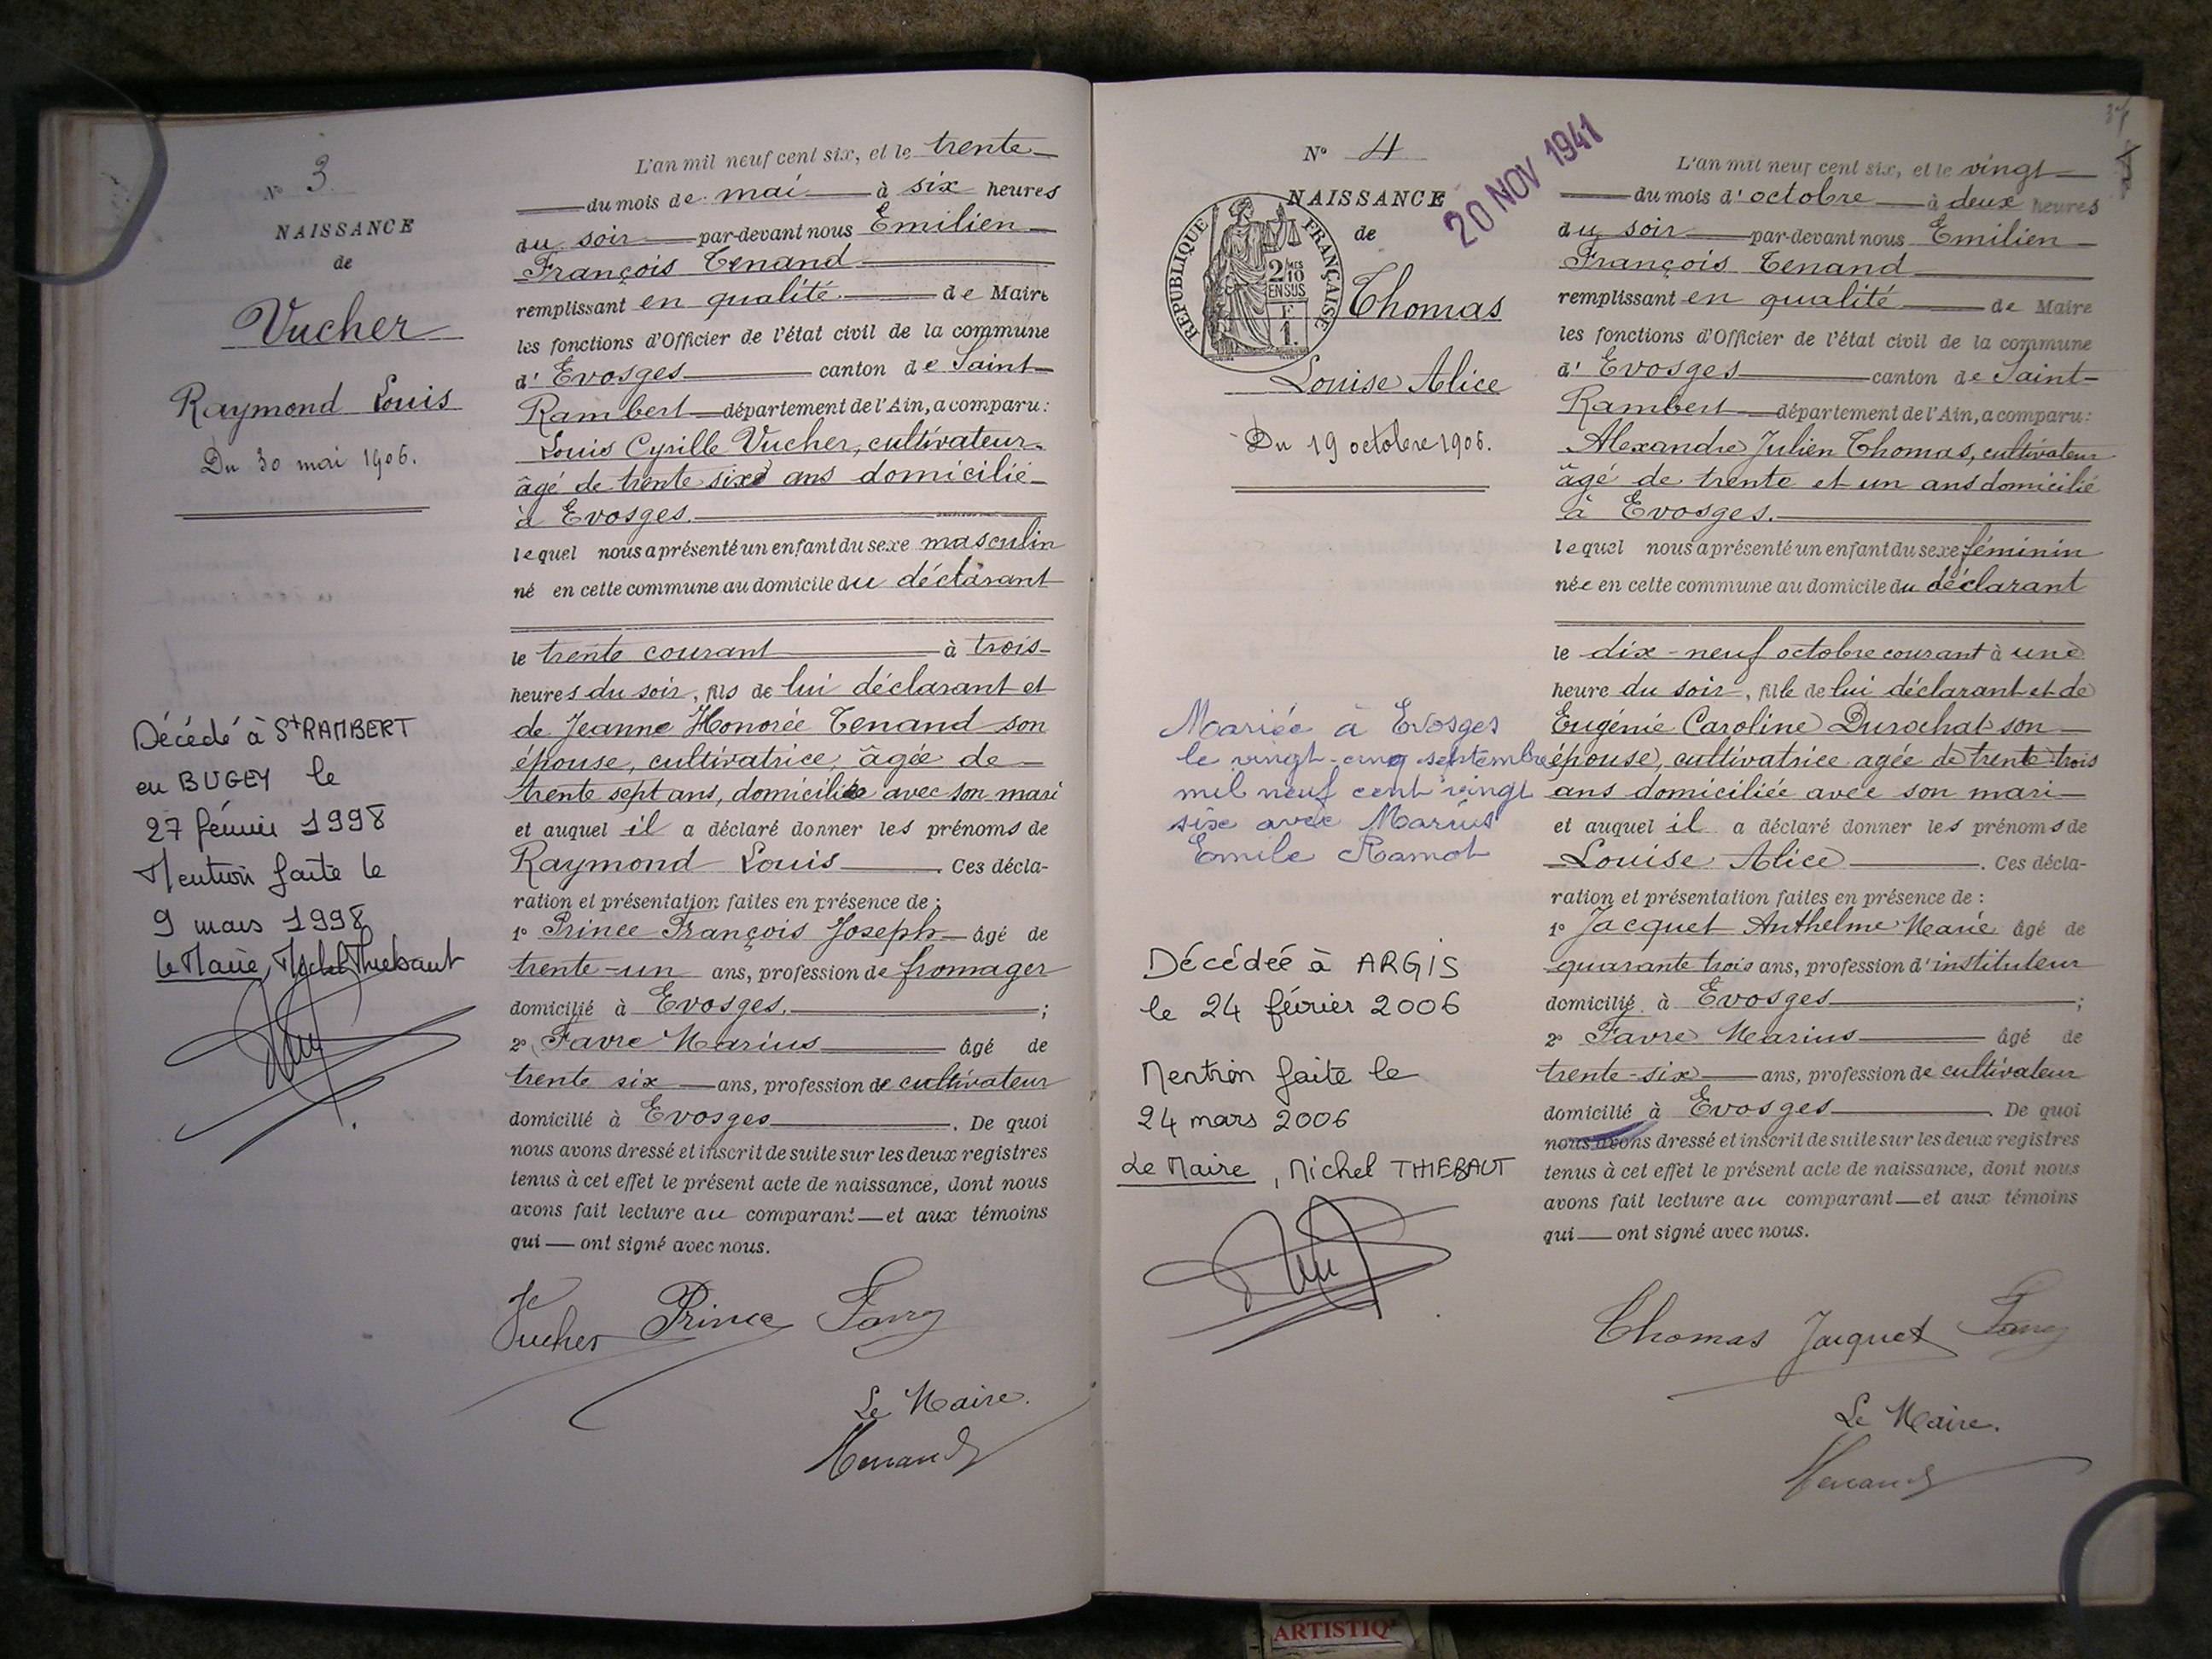 N° 3
NAISSANCE
de
Vucher
Raymond Louis
Du 30 mai 1906.
Décédé à St RAMBERT
en BUGEY le
27 février 1998
Mention faite le
9 mars 1998
Le Maire, Michel Thiebaut
L'an mil neuf cent six, et le trente
du mois de mai à six heures
du soir par-devant nous Emilien
François Tenand
remplissant en qualité de Maire
les fonctions d'Officier de l'état civil de la commune
d'Evosges canton de Saint-
Rambert département de l'Ain, a comparu:
Louis Cyrille Vucher, cultivateur
âgé de trente six ans domicilié
à Evosges.
lequel nous a présenté un enfant du sexe masculin
né en cette commune au domicile du déclarant
le trente courant à trois
heures du soir, fils de lui déclarant et
de Jeanne Honorée Tenand son
épouse, cultivatrice, âgée de
trente sept ans, domiciliée avec son mari
et auquel il a déclaré donner les prénoms de
Raymond Louis. Ces décla-
ration et présentation faites en présence de:
1° Prince François Joseph âgé de
trente-un ans, profession de fromager
domicilié à Evosges.;
2° Favre Marius âgé de
trente six ans, profession de cultivateur
domicilié à Evosges. De quoi
nous avons dressé et inscrit de suite sur les deux registres
tenus à cet effet le présent acte de naissance, dont nous
avons fait lecture au comparant et aux témoins
qui ont signé avec nous.
Vucher Prince Favre
Le Maire.
Tenand
N° 4
20 NOV 1941
NAISSANCE
de
RÉPUBLIQUE FRANÇAISE
2/10 MES
EN SUS
F
1.
Thomas
Louise Alice
Du 19 octobre 1906.
Mariée à Evosges
le vingt-cinq septembre
mil neuf cent vingt
six avec Marius
Emile Ramot
Décédée à ARGIS
le 24 février 2006
Mention faite le
24 mars 2006
Le Maire, Michel THIEBAUT
L'an mil neuf cent six, et le vingt
du mois d'octobre à deux heures
du soir par-devant nous Emilien
François Tenand
remplissant en qualité de Maire
les fonctions d'Officier de l'état civil de la commune
d'Evosges canton de Saint-
Rambert département de l'Ain, a comparu:
Alexandre Julien Thomas, cultivateur
âgé de trente et un ans domicilié
à Evosges.
lequel nous a présenté un enfant du sexe féminin
née en cette commune au domicile du déclarant
le dix-neuf octobre courant à une
heure du soir, fille de lui déclarant et de
Eugénie Caroline Durochat son
épouse, cultivatrice agée de trente-trois
ans domiciliée avec son mari
et auquel il a déclaré donner les prénoms de
Louise Alice. Ces décla-
ration et présentation faites en présence de:
1° Jacquet Anthelme Marie âgé de
quarante trois ans, profession d'instituteur
domicilié à Evosges;
2° Favre Marius âgé de
trente-six ans, profession de cultivateur
domicilié à Evosges. De quoi
nous avons dressé et inscrit de suite sur les deux registres
tenus à cet effet le présent acte de naissance, dont nous
avons fait lecture au comparant et aux témoins
qui ont signé avec nous.
Thomas Jacquet Favre
Le Maire.
Tenand
ARTISTIQ